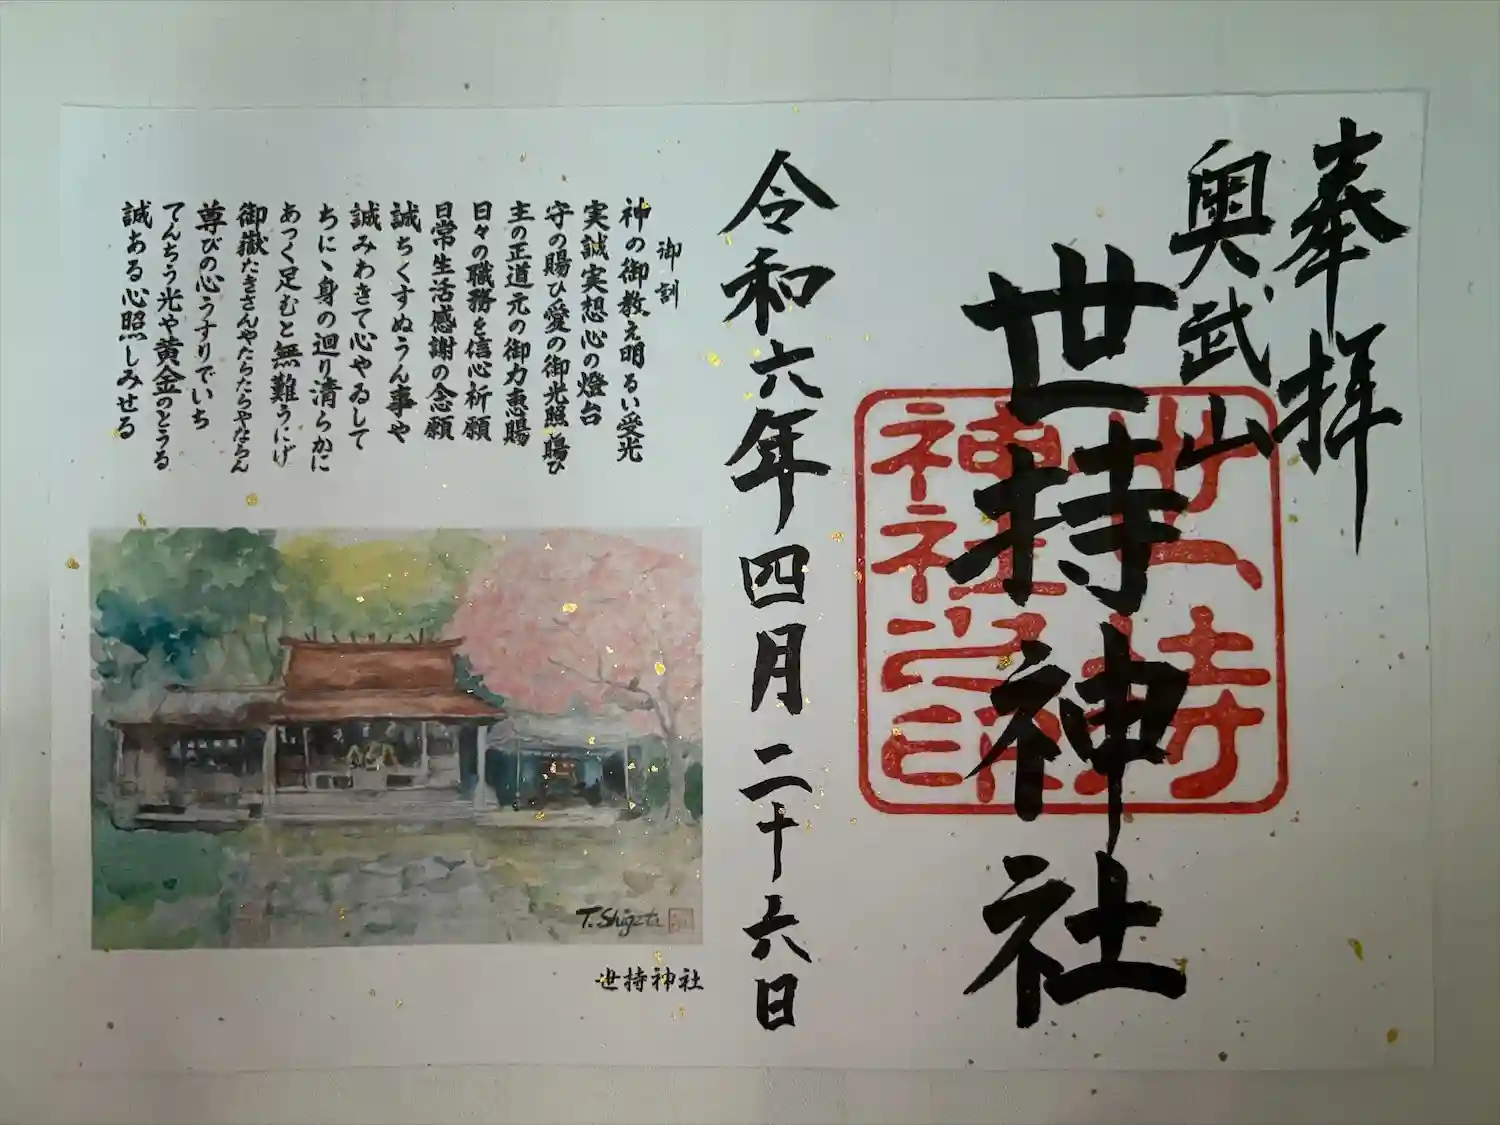 奉拝
奥武山
世持神社
世持
神社
之印
令和六年四月二十六日
御訓
神の御教え明るい受光
実誠実想心の燈台
守の賜ひ愛の御光照賜ひ
主の正道元の御力恵賜
日々の職務を信心祈願
日常生活感謝の念願
誠ちくすぬうん事や
誠みわきて心やゐして
ちにヽ身の廻り清らかに
あっく足むと無難うにげ
御嶽たきさんやたらたらやならん
尊びの心うすりでいち
てんちう光や黄金のとうる
誠ある心照しみせる
T. Shigeta
世持神社